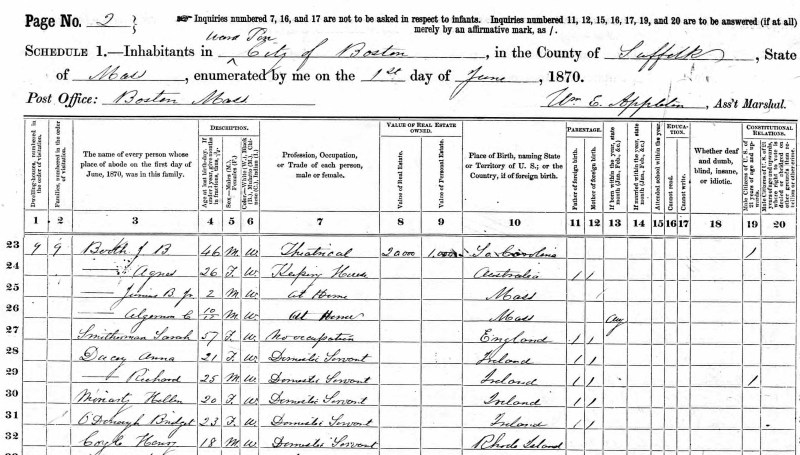 Page No. 2
Inquiries numbered 7, 16, and 17 are not to be asked in respect to infants. Inquiries numbered 11, 12, 15, 16, 17, 19, and 20 are to be answered (if at all) merely by an affirmative mark, as /.
Ward Ten
SCHEDULE 1.—Inhabitants in City of Boston, in the County of Suffolk, State
of Mass, enumerated by me on the 1st day of June, 1870.
Post Office: Boston Mass
Wm E. Appleton, Ass't Marshal.
DESCRIPTION. VALUE OF REAL ESTATE OWNED. PARENTAGE. EDUCATION. CONSTITUTIONAL RELATIONS.
Dwelling-houses, numbered in the order of visitation.
Families, numbered in the order of visitation.
The name of every person whose place of abode on the first day of June, 1870, was in this family.
Age at last birth-day.
Sex.—Males (M.), Females (F.)
Profession, Occupation, or Trade of each person, male or female.
Value of Real Estate.
Value of Personal Estate.
Place of Birth, naming State or Territory of U. S.; or the Country, if of foreign birth.
Father of foreign birth.
Mother of foreign birth.
If born within the year, state month (Jan., Feb., &c.)
If married within the year, state month (Jan., Feb., &c.)
Attended school within the year.
Cannot read.
Cannot write.
Whether deaf and dumb, blind, insane, or idiotic.
Male Citizens of U. S. of 21 years of age and upwards.
1 2 3 4 5 6 7 8 9 10 11 12 13 14 15 16 17 18 19 20
23 9 9 Booth J B 46 M W Theatrical 20000 So Carolina /
24 — Agnes 26 F W Keeping House Australia / /
25 — Junius B Jr 2 M W At Home Mass
26 — Algernon C 10/12 M W At Home Mass Aug
27 Smitherman Sarah 57 F W No occupation England / /
28 Ducey Anna 21 F W Domestic Servant Ireland / /
29 — Richard 25 M W Domestic Servant Ireland / / /
30 Moriarty Hellen 20 F W Domestic Servant Ireland / /
31 Bridget 23 F W Domestic Servant Ireland / /
32 Coyle Henry 18 M W Domestic Servant Rhode Island